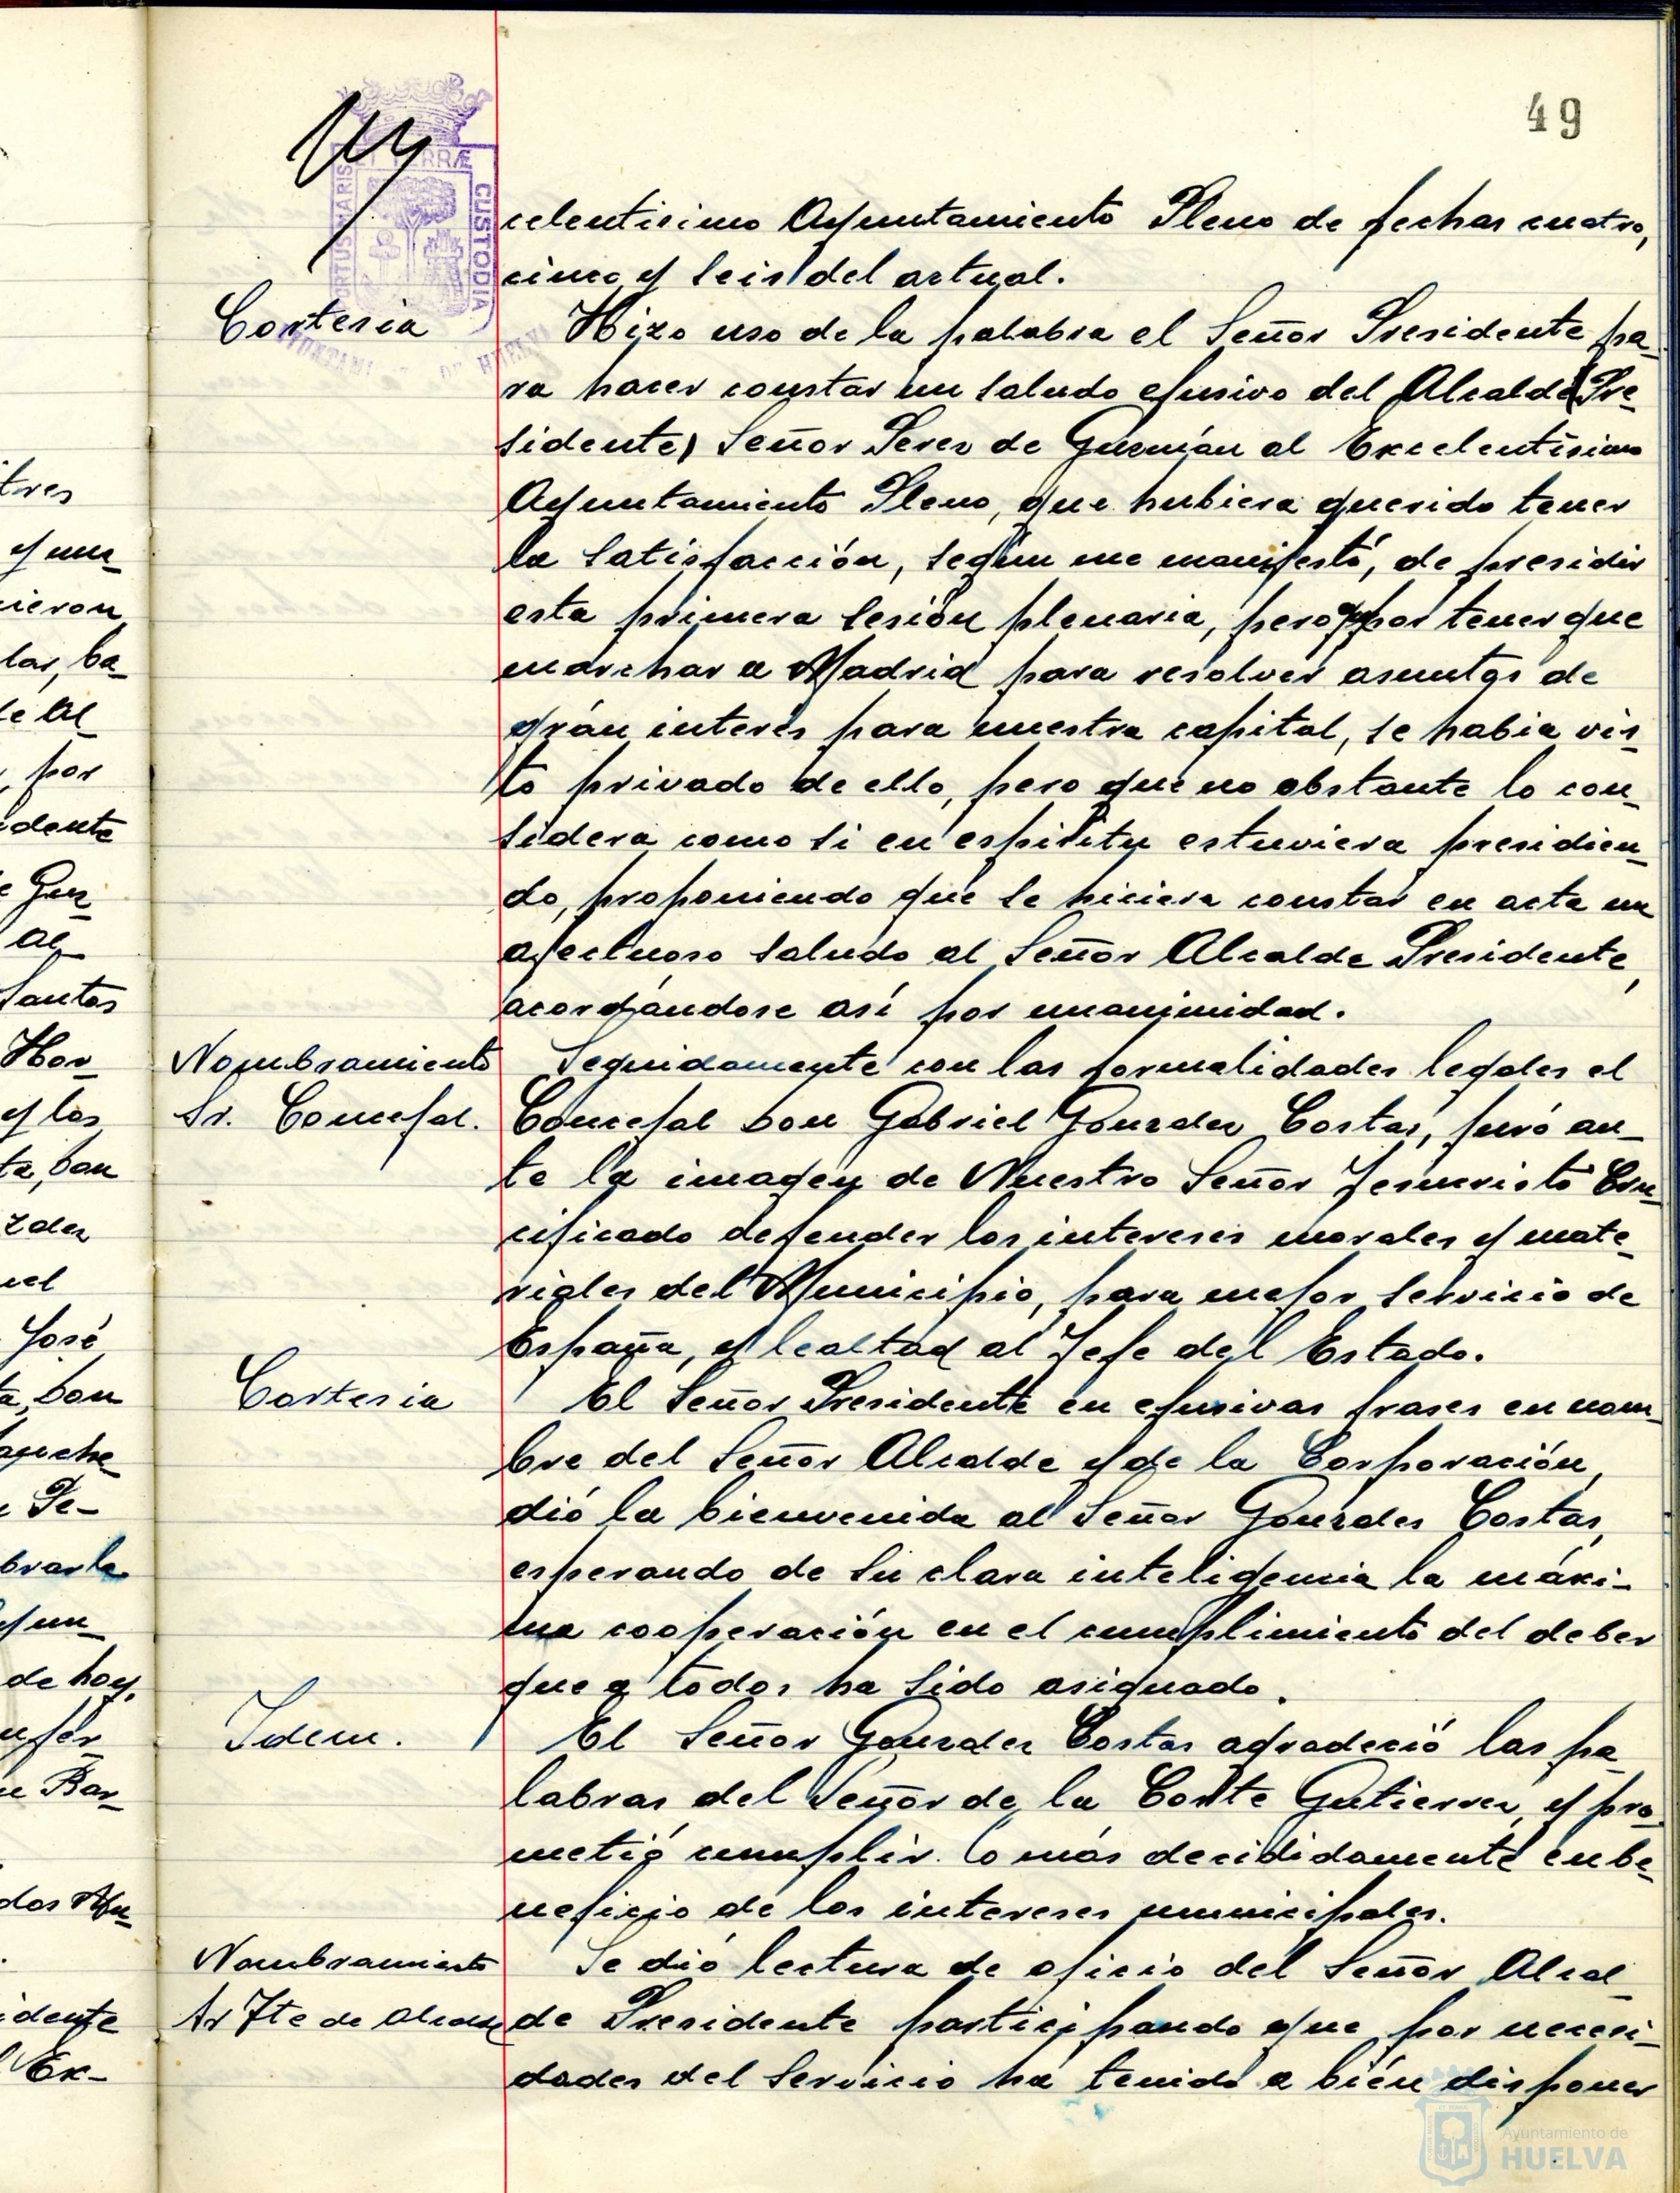 49
celentisimo Ayuntamiento Pleno de fechas cuatro,
cinco y seis del actual.
Cortesia
Hizo uso de la palabra el Señor Presidente pa-
ra hacer constar un saludo efusivo del Alcalde (Pre-
sidente) Señor Perez de Guzmán al Excelentísimo
Ayuntamiento Pleno, que hubiera querido tener
la satisfacción, según me manifestó, de presidir
esta primera sesión plenaria, pero que por tener que
marchar a Madrid para resolver asuntos de
grán interés para nuestra capital, se habia vis-
to privado de ello, pero que no obstante lo con-
sidera como si en espiritu estuviera presidien-
do, proponiendo que se hiciera constar en acta un
afectuoso saludo al Señor Alcalde Presidente,
acordándose así por unanimidad.
Nombramiento
Sr. Concejal.
Seguidamente con las formalidades legales el
Concejal Don Gabriel Gonzalez Costas, juró an-
te la imagen de Nuestro Señor Jesucristo Cru-
cificado defender los intereses morales y mate-
riales del Municipio, para mejor servicio de
España, y lealtad al Jefe del Estado.
Cortesia
El Señor Presidente en efusivas frases en nom-
bre del Señor Alcalde y de la Corporación,
dió la bienvenida al Señor Gonzalez Costas,
esperando de su clara inteligencia la máxi-
ma cooperación en el cumplimiento del deber
que a todos ha sido asignado.
Idem.
El Señor Gonzalez Costas agradeció las pa-
labras del Señor de la Corte Gutierrez, y pro-
metió cumplir lo más decididamente en be-
neficio de los intereses municipales.
Nombramiento
Sr Tte de Alcalde
Se dió lectura de oficio del Señor Alcal-
de Presidente participando que por necesi-
dades del servicio ha tenido a bién disponer
PORTUS MARIS ET TERRÆ CUSTODIA
AYUNTAMIENTO DE HUELVA
Ayuntamiento de
HUELVA